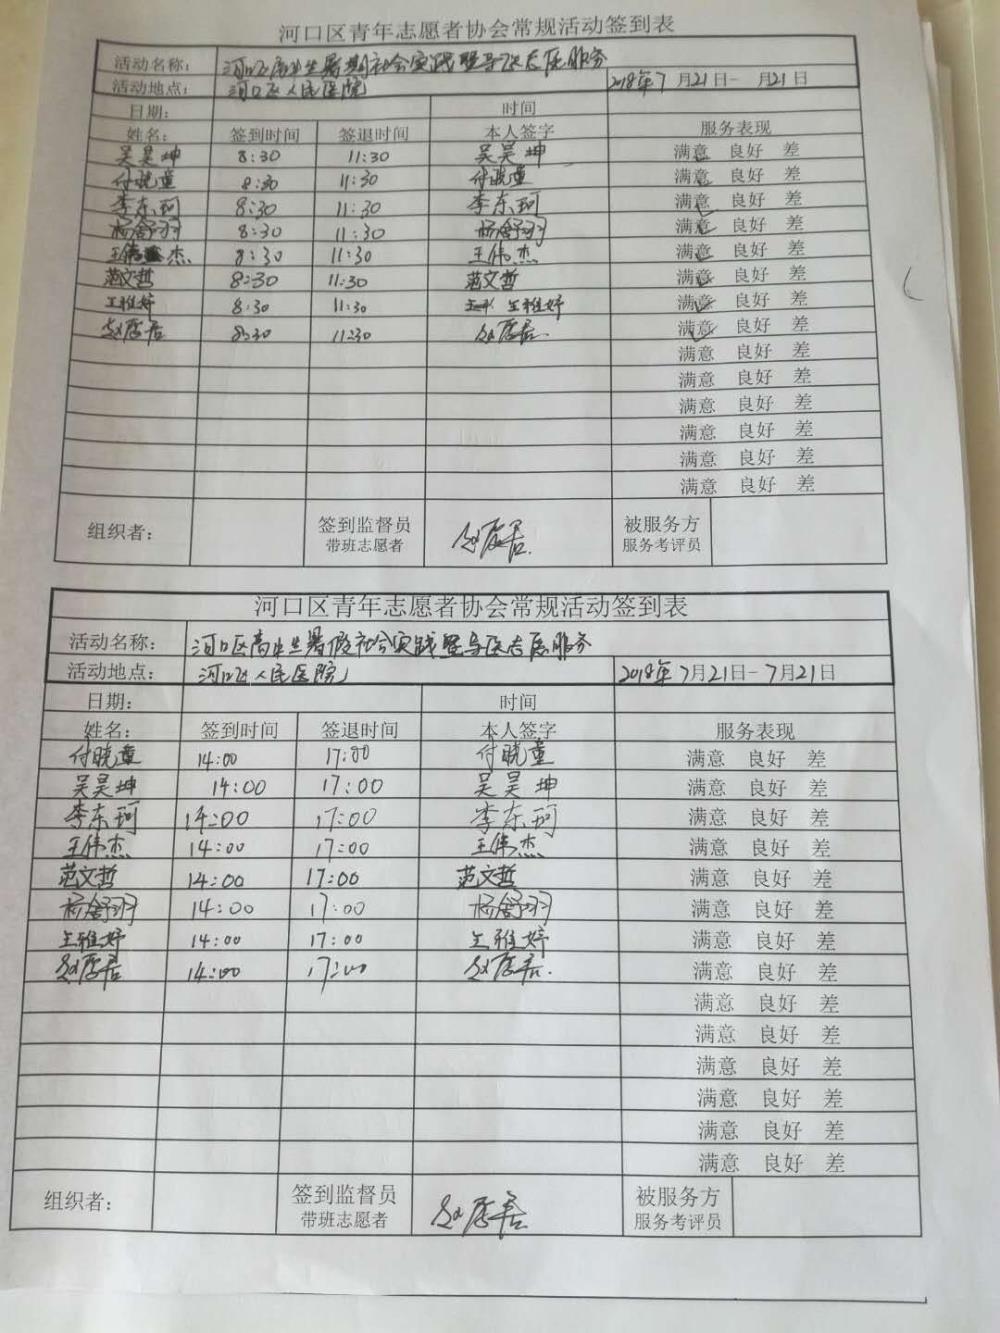 河口区青年志愿者协会常规活动签到表
活动名称： 河口区高中生暑期社会实践暨导医志愿服务
活动地点： 河口区人民医院 2018年7月21日- 月21日
日期： 时间
姓名： 签到时间 签退时间 本人签字 服务表现
吴昊坤 8:30 11:30 吴昊坤 满意 良好 差
付晓童 8:30 11:30 付晓童 满意 良好 差
李东珂 8:30 11:30 李东珂 满意 良好 差
杨舒羽 8:30 11:30 杨舒羽 满意 良好 差
王伟杰 8:30 11:30 王伟杰 满意 良好 差
范文哲 8:30 11:30 范文哲 满意 良好 差
王雅婷 8:30 11:30 王雅婷 满意 良好 差
赵 8:30 11:30 赵 满意 良好 差
满意 良好 差
满意 良好 差
满意 良好 差
满意 良好 差
满意 良好 差
满意 良好 差
组织者： 签到监督员 赵 被服务方
带班志愿者 服务考评员
河口区青年志愿者协会常规活动签到表
活动名称： 河口区高中生暑假社会实践暨导医志愿服务
活动地点： 河口区人民医院 2018年7月21日-7月21日
日期： 时间
姓名： 签到时间 签退时间 本人签字 服务表现
付晓童 14:00 17:00 付晓童 满意 良好 差
吴昊坤 14:00 17:00 吴昊坤 满意 良好 差
李东珂 14:00 17:00 李东珂 满意 良好 差
王伟杰 14:00 17:00 王伟杰 满意 良好 差
范文哲 14:00 17:00 范文哲 满意 良好 差
杨舒羽 14:00 17:00 杨舒羽 满意 良好 差
王雅婷 14:00 17:00 王雅婷 满意 良好 差
赵 14:00 17:00 赵 满意 良好 差
满意 良好 差
满意 良好 差
满意 良好 差
满意 良好 差
满意 良好 差
满意 良好 差
组织者： 签到监督员 赵 被服务方
带班志愿者 服务考评员